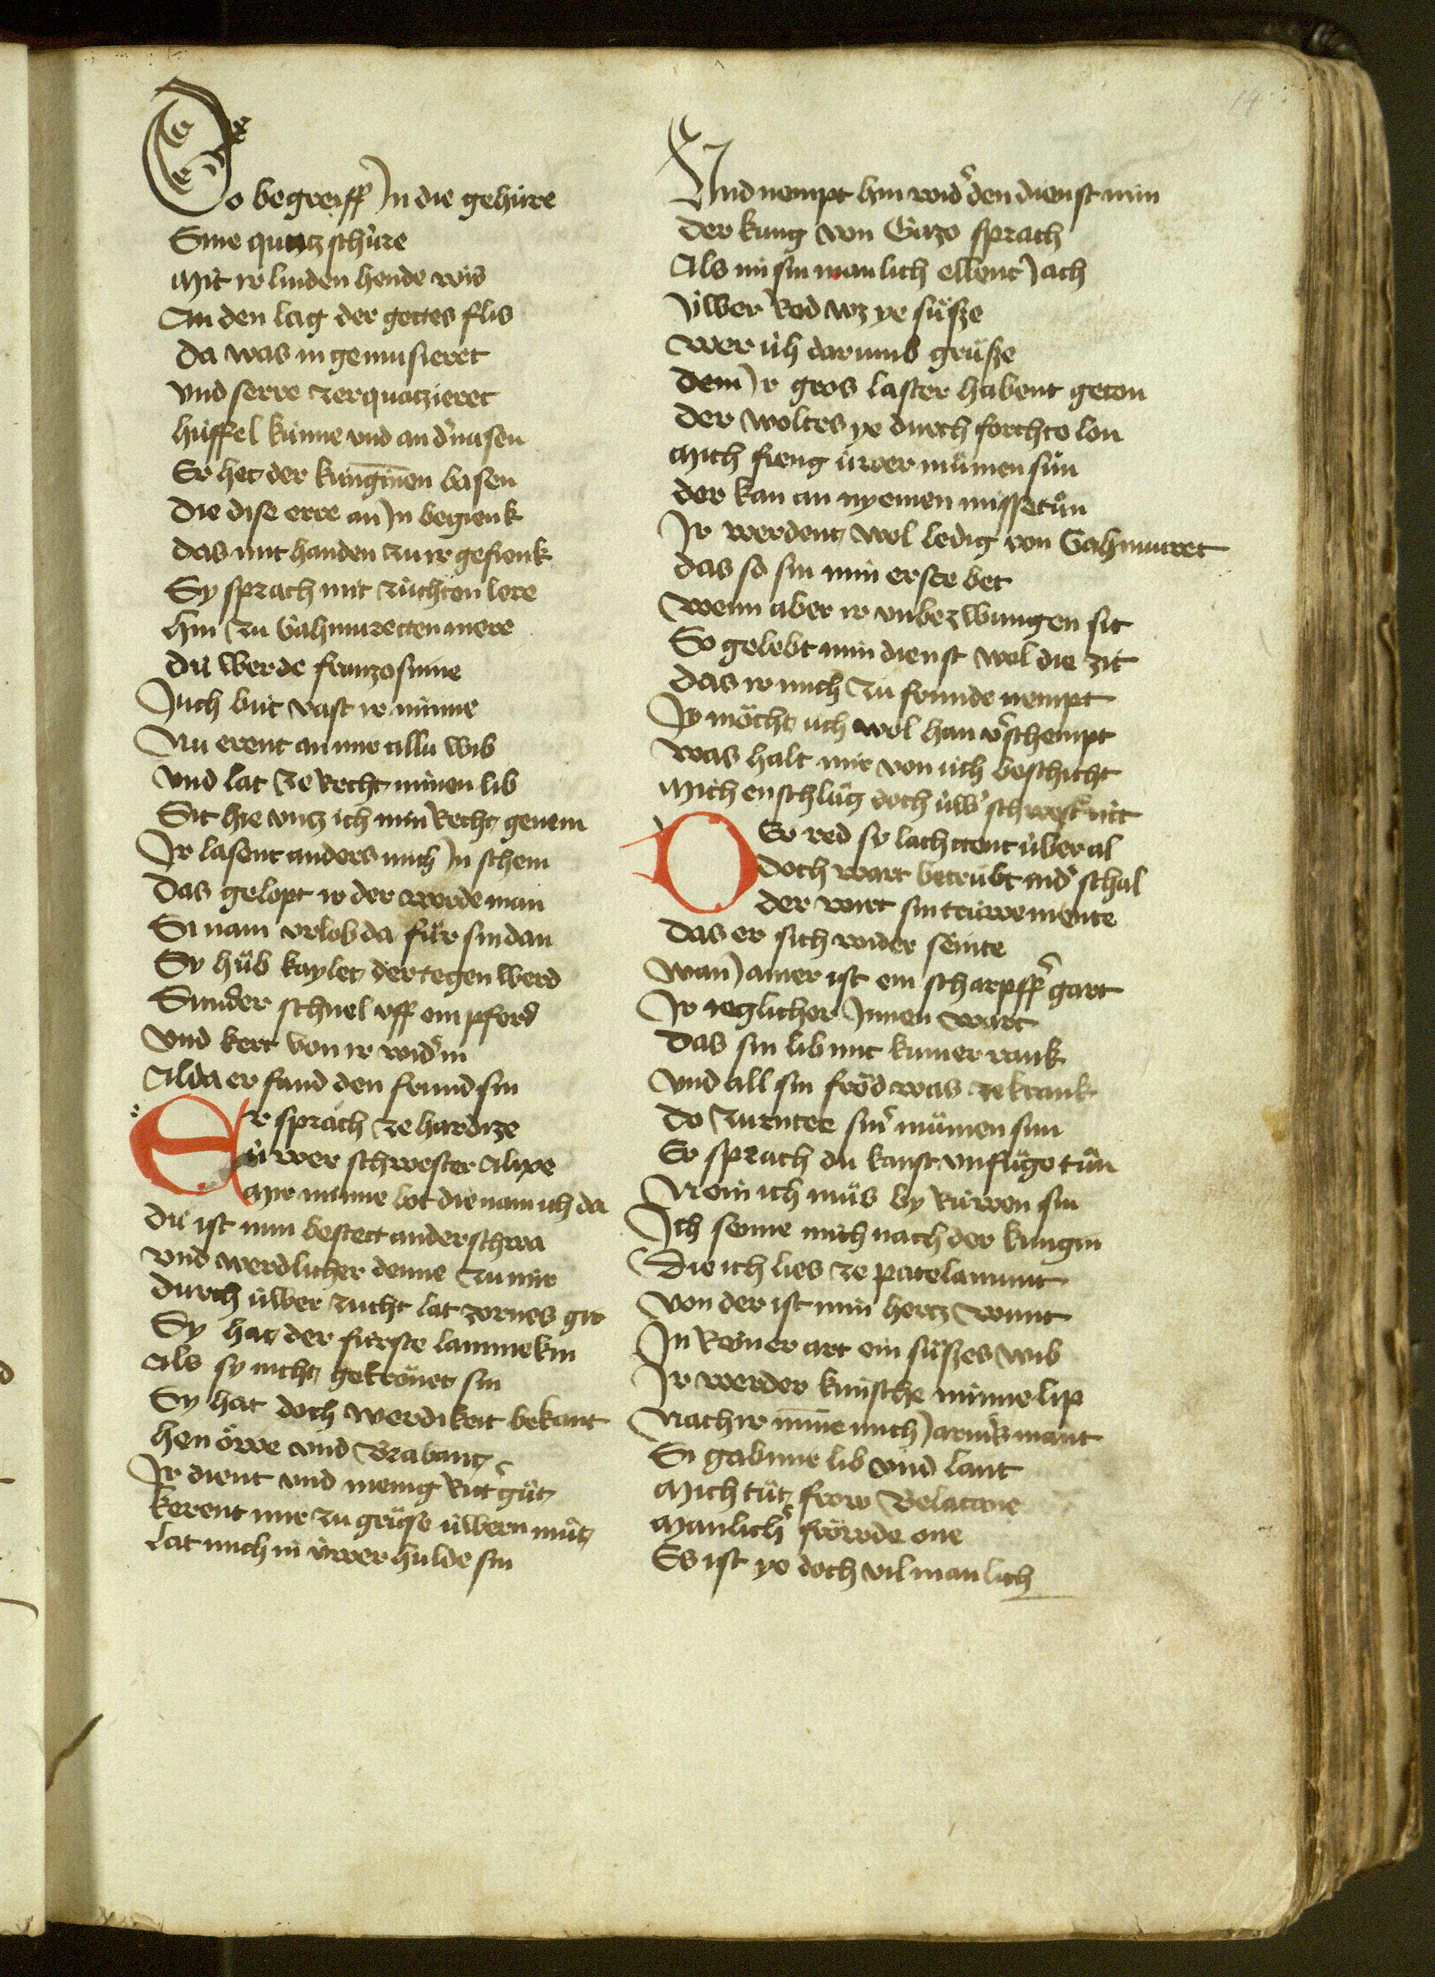 14
Do begreiff In die gehúre
Sine quatzschúre
Mit ir linden hende wis
An den lag der gottes flis
Da was in gemusieret
Vnd serre zerquatzieret
húffel kúnne vnd an der nasen
Er het der kungīnen basen
Die dise erre an In begienk
Das mit handen zu ir gefienk
Sy sprach mit zúchten lere
hin zu Gahmuretten mere
Dú werde franzosinne
Juch bút vast ir minne
Nu erent an mir allú wib
Vnd lat ze Recht minen lib
Sit hie vntz ich min Recht genem
Jr lasent anders mich In schem
Das gelopt ir der werde man
Si nam vrlob da fúr sin dan
Sy húb kaylet der tegen werd
Sunder schnel vff ein pferd
Vnd kert von ir wider in
Alda er fand den frund sin
Er sprach ze hardize
úwer schwester Alixe
Mir minne bot die nam ich da
Dú ist nun bestett anderschwa
Vnd werdlicher denne zu mir
Durch úwer zucht lat zornes gir
Sy hat der fúrste lammekin
Als sy nicht gekrönet sin
Sy hat doch werdikeit bekant
henöwe vnd Brabant
Jr dient vnd menig Rittˀ gůt
kerent mir zu grůsse úwern můt
Lat mich in úwer hulde sin
Vnd nempt hin wider den dienst min
Der kung von Gazo sprach
Als im sin manlich ellent Jach
Úwer Red wz ye sússe
Wer úch darumb grússe
Dem Ir gros laster habent geton
Der woltes ye durch forchte lon
Mich fieng úwer můmen sún
Der kan an nyemen missetůn
Jr werdent wol ledig von Gahmuret
Das so sin min erste bet
Wenn aber ir vnbezwungen sit
So gelebt min dienst wol die zit
Das ir mich zu frunde nempt
Ir möcht úch wol han vˀschempt
Was halt mir von úch beschicht
Mich enschlůg doch úwˀ schwestˀ nit
Der red sy lachttent úberal
Doch wart betrúbt in dˀ schal
Der wirt sin trúwe mente
Das er sich wider sente
Wan Jamer ist ein scharpffˀ gart
Jr ieglicher Innen wart
Das sin lib mit kumer rank
Vnd all sin fröd was ze krank
Do zurnter sinˀ můmen sun
Er sprach du kanst vnfůge tůn
Nein ich můs by Rúwen sin
Ich senne mich nach der kungin
Die ich lies ze patelamunt
Von der ist min hertz wunt
In Reiner art ein sússes wib
Ir werder kúnsche minne lip
Nach ir minne mich Jamˀs mant
Si gab mir lib vnd lant
Mich tůt frow Belacane
Manlichˀ fröwde one
Es ist ye doch vil manlich